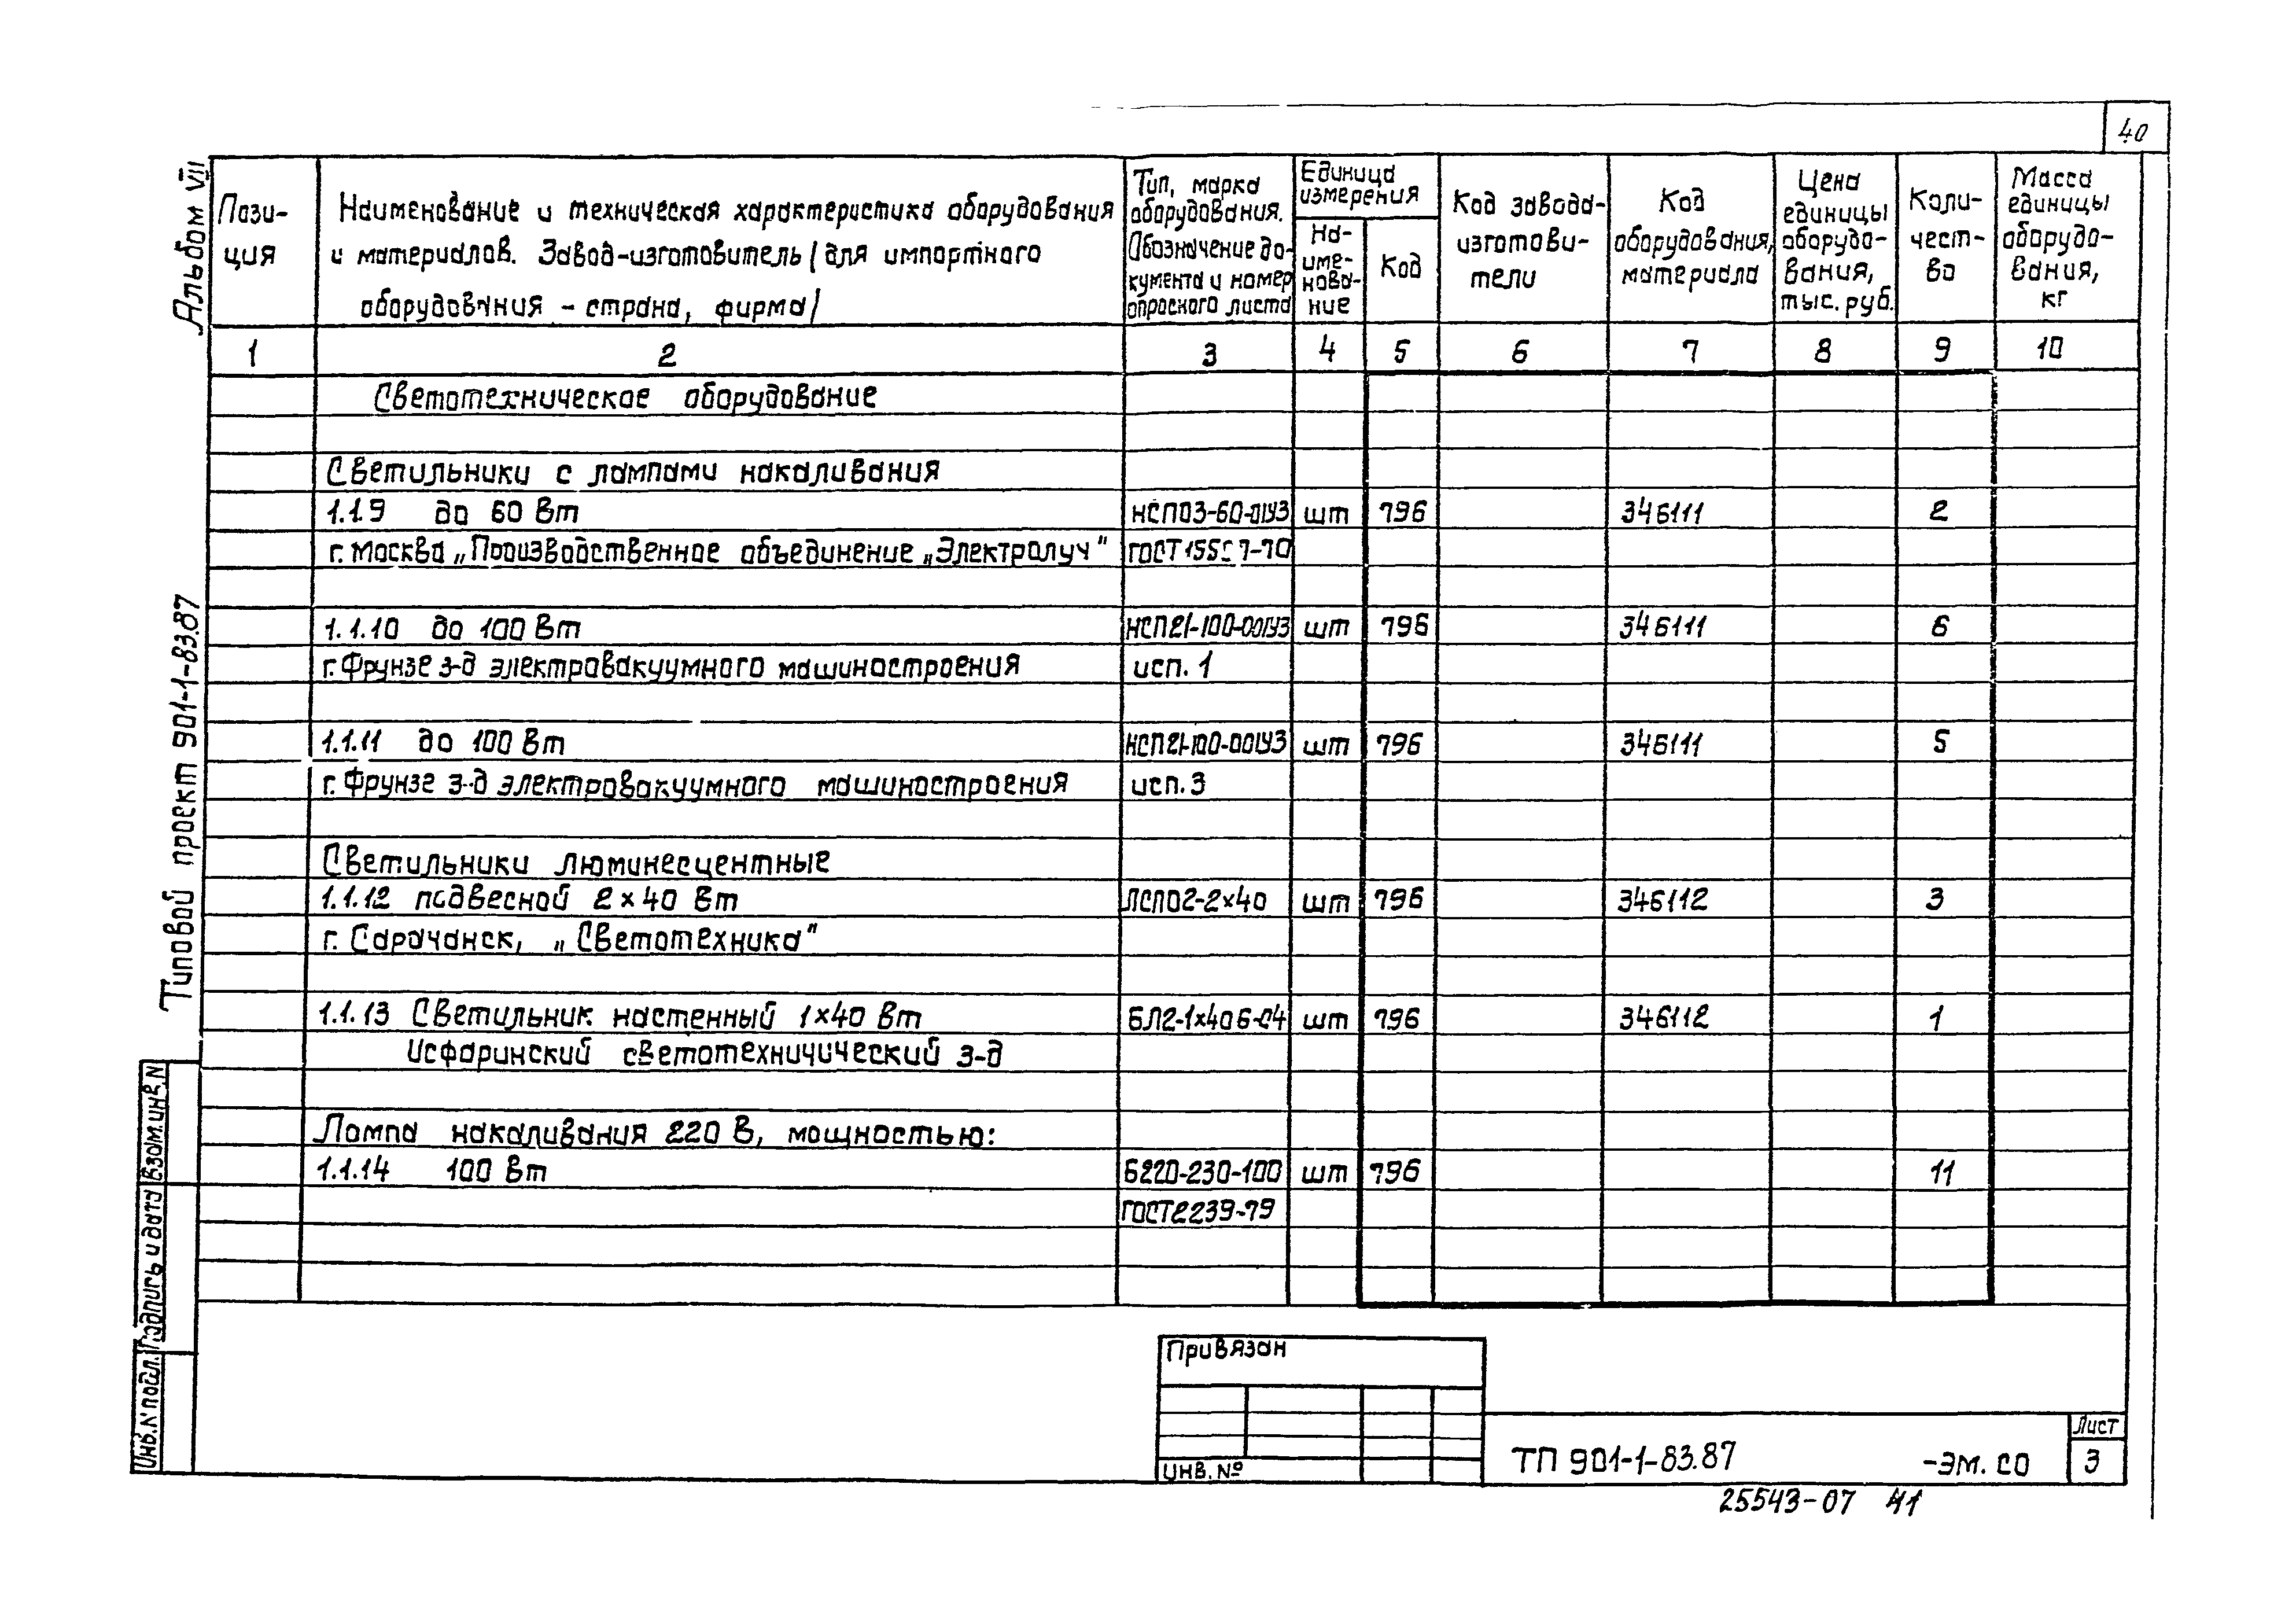 40
Альбом VII
Типовой проект 901-1-83.87
Взам.инв.N
Подпись и дата
Инв.N подл.
Пози-
ция
Наименование и техническая характеристика оборудования
и материалов. Завод-изготовитель/для импортного
оборудования - страна, фирма/
Тип, марка
оборудования.
Обозначение до-
кумента и номер
опросного листа
Единица
измерения
На-
име-
нова-
ние
Код
Код завода-
изготови-
тели
Код
оборудования,
материала
Цена
единицы
оборудо-
вания,
тыс. руб.
Коли-
чест-
во
Масса
единицы
оборудо-
вания,
кг
1 2 3 4 5 6 7 8 9 10
Светотехническое оборудование
Светильники с лампами накаливания
1.1.9 до 60 Вт НСП03-60-01У3 шт 796 346111 2
г. Москва „Производственное объединение „Электролуч"
1.1.10 до 100 Вт НСП21-100-001У3 шт 796 346111 6
г. Фрунзе з-д электровакуумного машиностроения исп. 1
1.1.11 до 100 Вт НСП21-100-001У3 шт 796 346111 5
г. Фрунзе з-д электровакуумного машиностроения исп. 3
Светильники люминесцентные
1.1.12 подвесной 2×40 Вт ЛСП02-2×40 шт 796 346112 3
г. Сарачанск, „Светотехника"
1.1.13 Светильник настенный 1×40 Вт шт 796 346112 1
Исфаринский светотехничический з-д
Лампа накаливания 220 В, мощностью:
1.1.14 100 Вт Б220-230-100 шт 796 11
ГОСТ2239-79
Привязан
ИНВ. №
ТП 901-1-83.87 -ЭМ. СО
Лист
3
25543-07 41